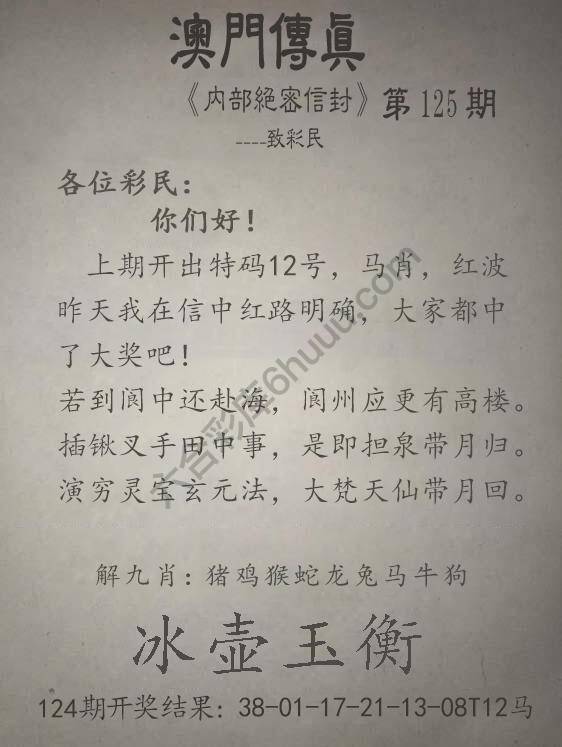 澳門傳眞
《内部絕密信封》第125期
----致彩民
各位彩民：
你们好！
上期开出特码12号，马肖，红波
昨天我在信中红路明确，大家都中
了大奖吧！
若到阆中还赴海，阆州应更有高楼。
插锹叉手田中事，是即担泉带月归。
演穷灵宝玄元法，大梵天仙带月回。
解九肖：猪鸡猴蛇龙兔马牛狗
冰壶玉衡
124期开奖结果：38-01-17-21-13-08T12马
六合彩库6huuu.com